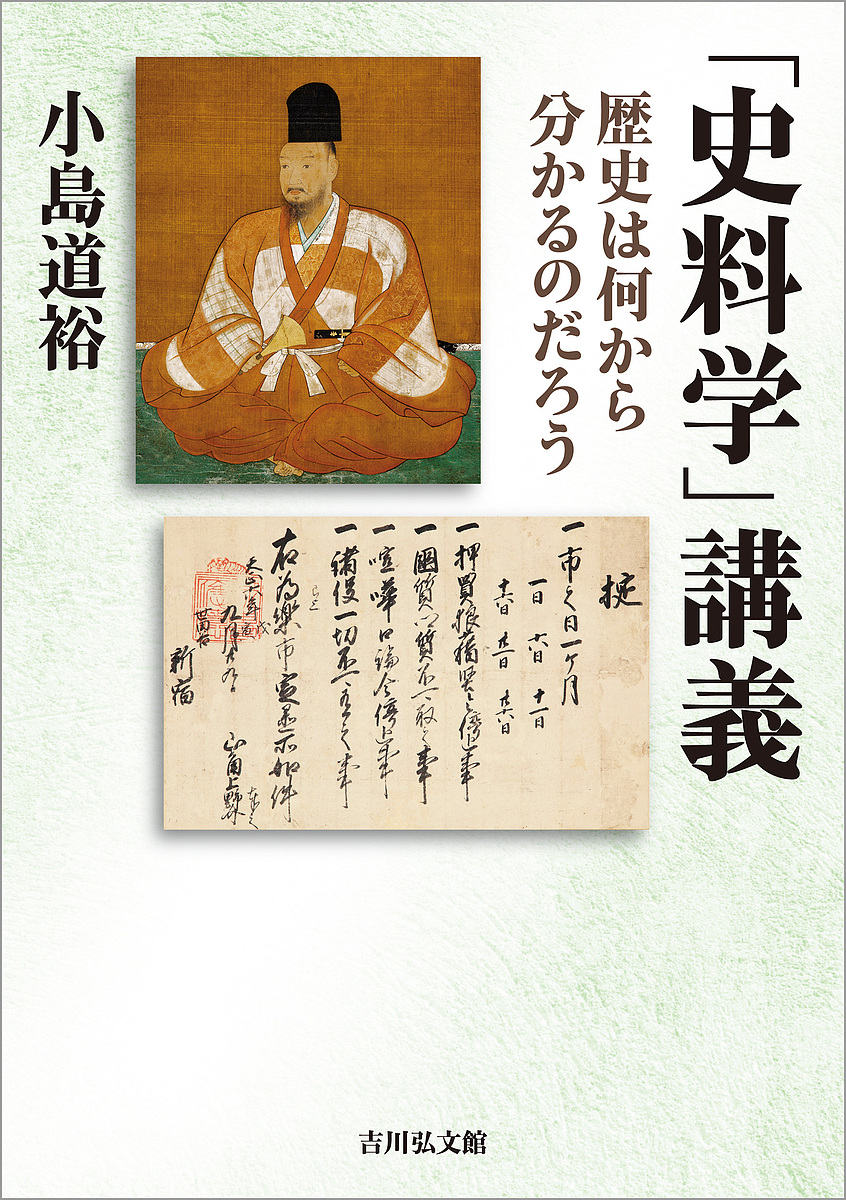 「史料学」講義
歴史は何から
分かるのだろう
小島道裕
掟
一市之日一ヶ月
一日 六日 十一日
十六日 廿一日 廿六日
一押買狼藉堅令停止事
一國質郷質不可取之事
一喧嘩口論令停止事
一諸役一切不可有之事
右為樂市定置所如件
天正六年
九月廿九日
世田谷
新宿
山角上野介
吉川弘文館